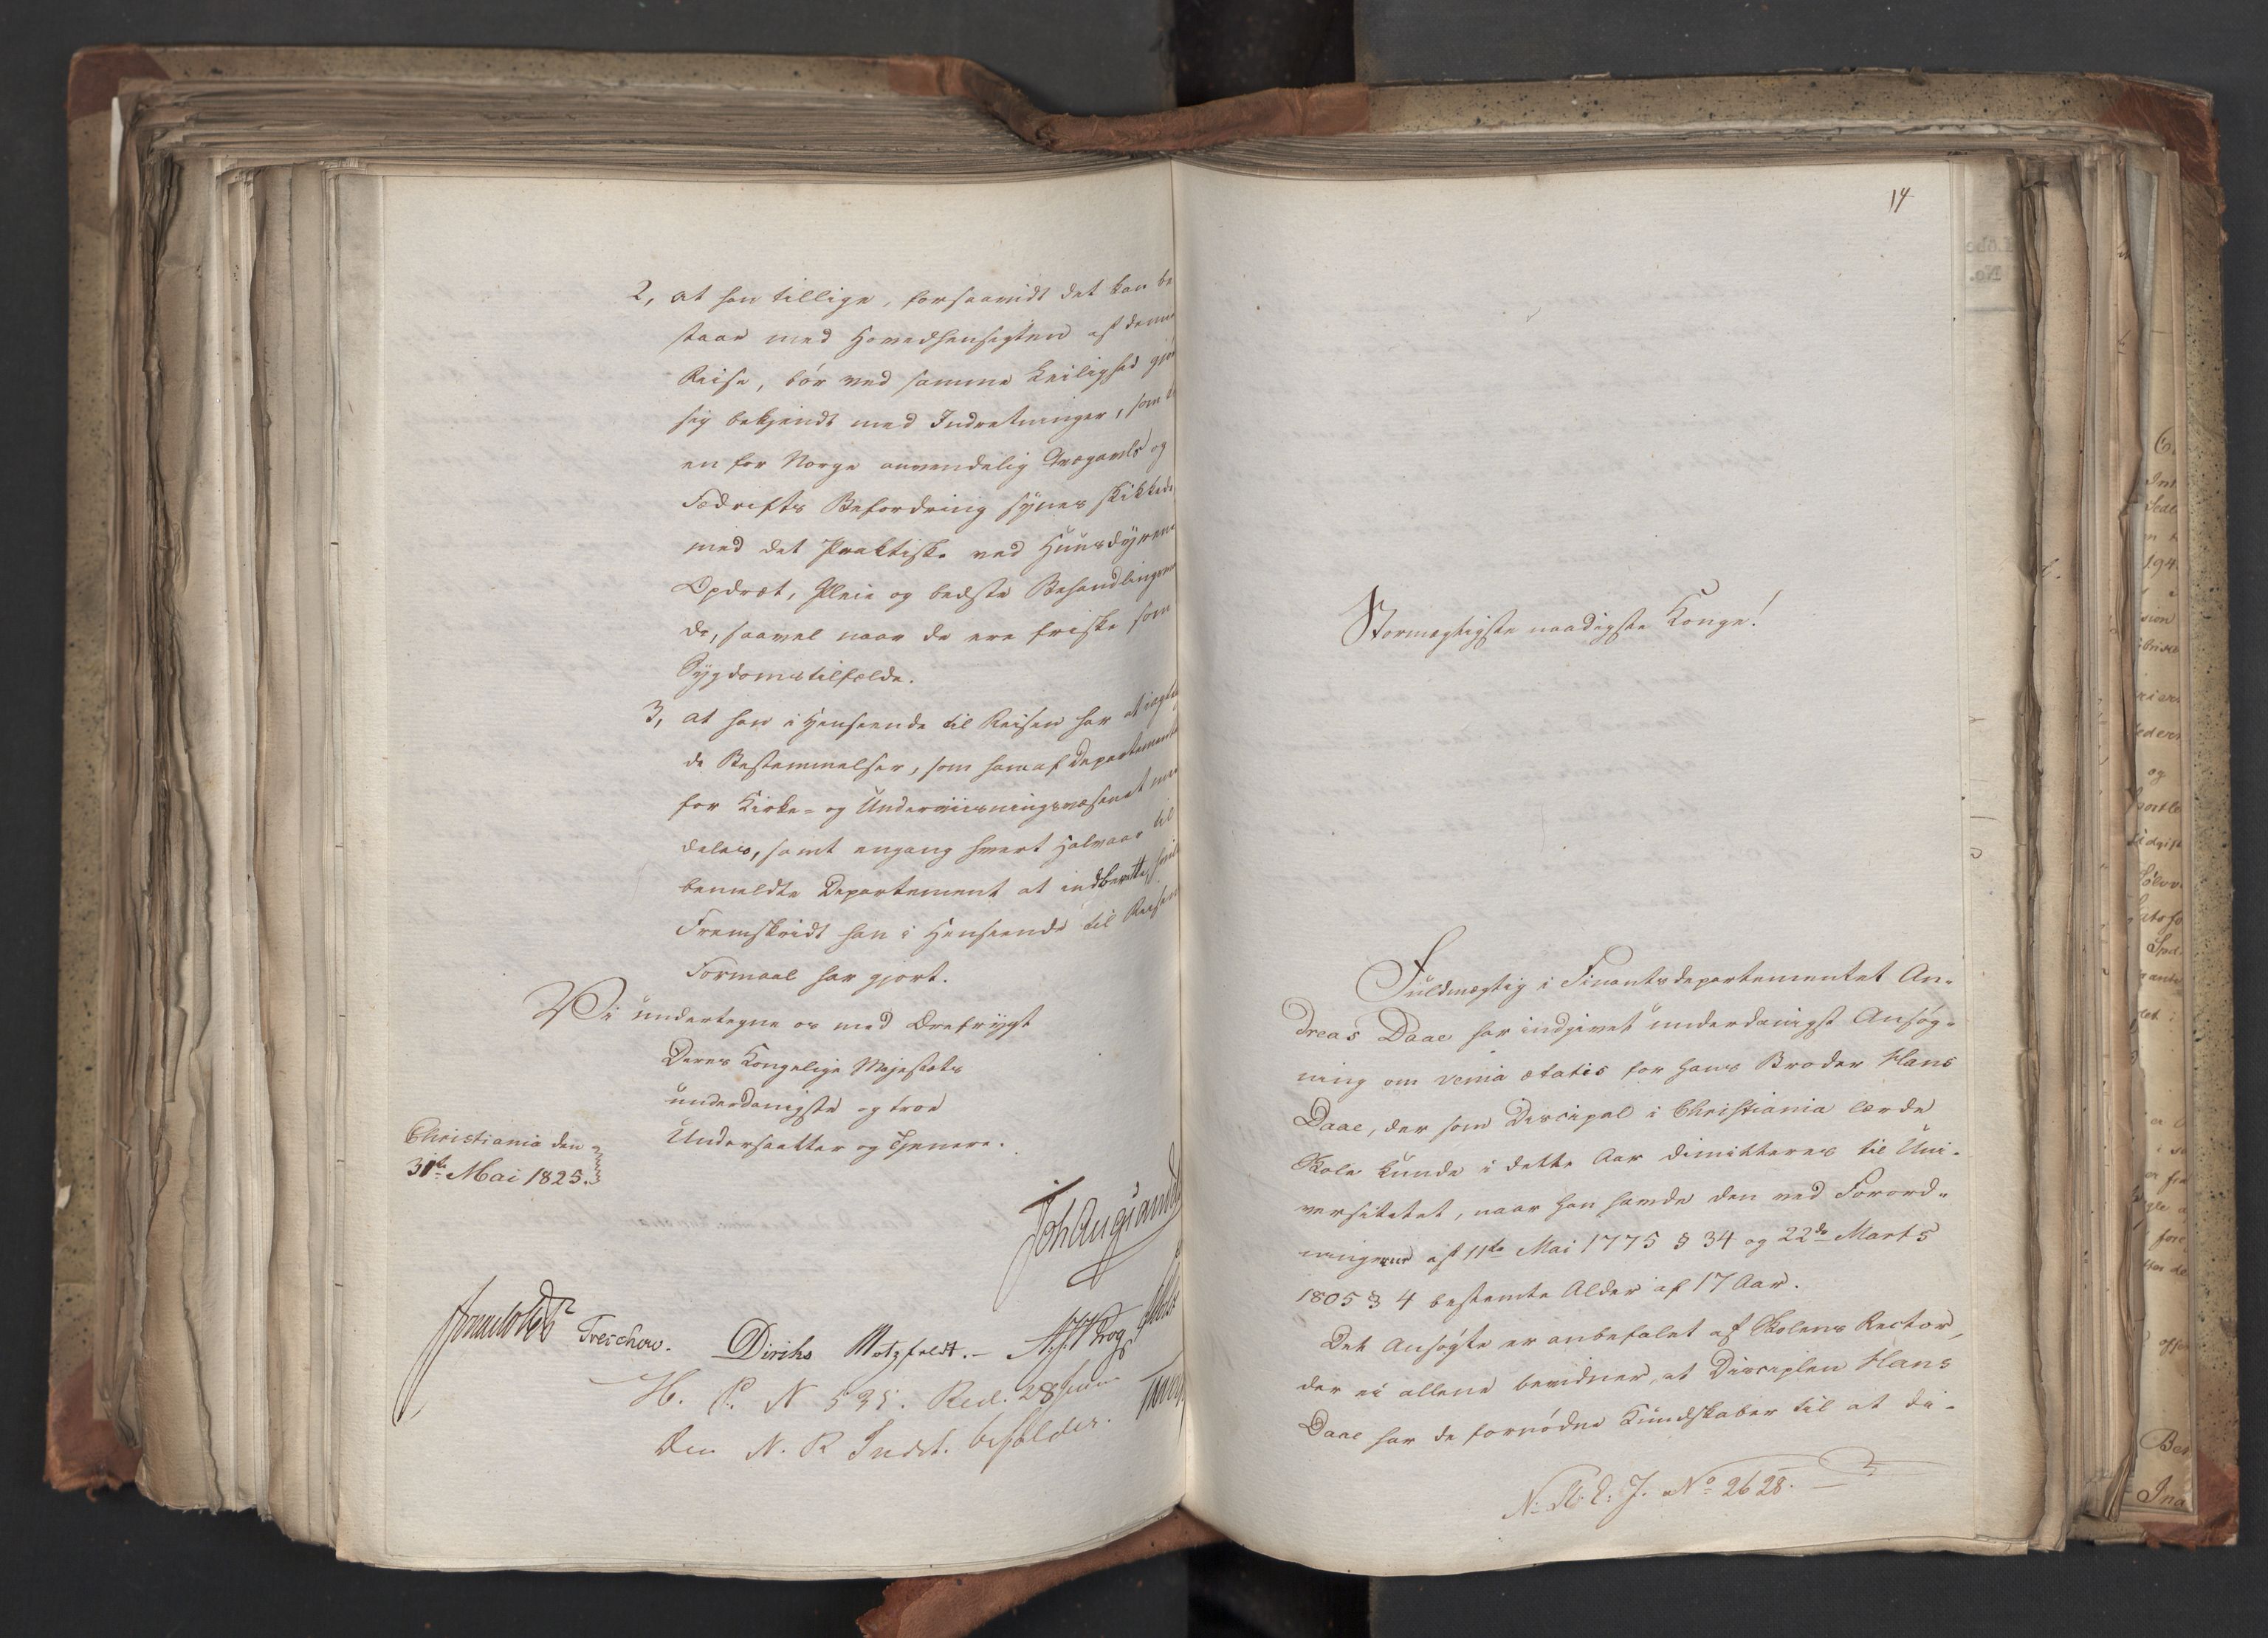 2, at han tillige, forsaavidt det kan be
staae med Hovedhensigten af denne
Reise, bør ved samme Leilighed gjøre
sig bekjendt med Indretninger, som
en for Norge anvendelig Qvægavls og
Fædrifts Befordring synes skikkede
med det Praktiske ved Huusdyrenes
Opdræt, Pleie og bedste Behandlingsmaa
de, saavel naar de ere friske som
Sygdomstilfælde.
3, at han i Henseende til Reisen har at iagtt
de Bestemmelser, som ham af Departementet
for Kirke- og Underviisningsvæsenet med
deles, samt engang hvert Halvaar til
bemeldte Departement at indberette, hvilke
Fremskridt han i Henseende til Reisens
Formaal har gjort.
Vi undertegne os med Ærefrygt
Deres Kongelige Majestæts
underdanigste og troe
Undersaatter og Tjenere.
Christiania den
31te Mai 1825.
Joh Aug Sandels
Sommerhjelm Treschow. Diriks Motzfeldt. - Krog
H. P. N 535. Red. 28 Juni
Den N. R Indst. bifaldes.
14
Stormægtigste naadigste Konge!
Fuldmægtig i Finantsdepartementet An-
dreas Daae har indgivet underdanigst Ansøg-
ning om venia ætatis for hans Broder Hans
Daae, der som Discipel i Christiania lærde
Skole kunde i dette Aar dimitteres til Uni-
versitetet, naar han havde den ved Forord-
ningerne af 11te Mai 1775 § 34 og 22de Marts
1805 § 4 bestemte Alder af 17 Aar.
Det Ansøgte er anbefalet af Skolens Rector,
der ei allene bevidner, at Disciplen Hans
Daae har de fornødne Kundskaber til at di-
N: St: E: J. No 2628.